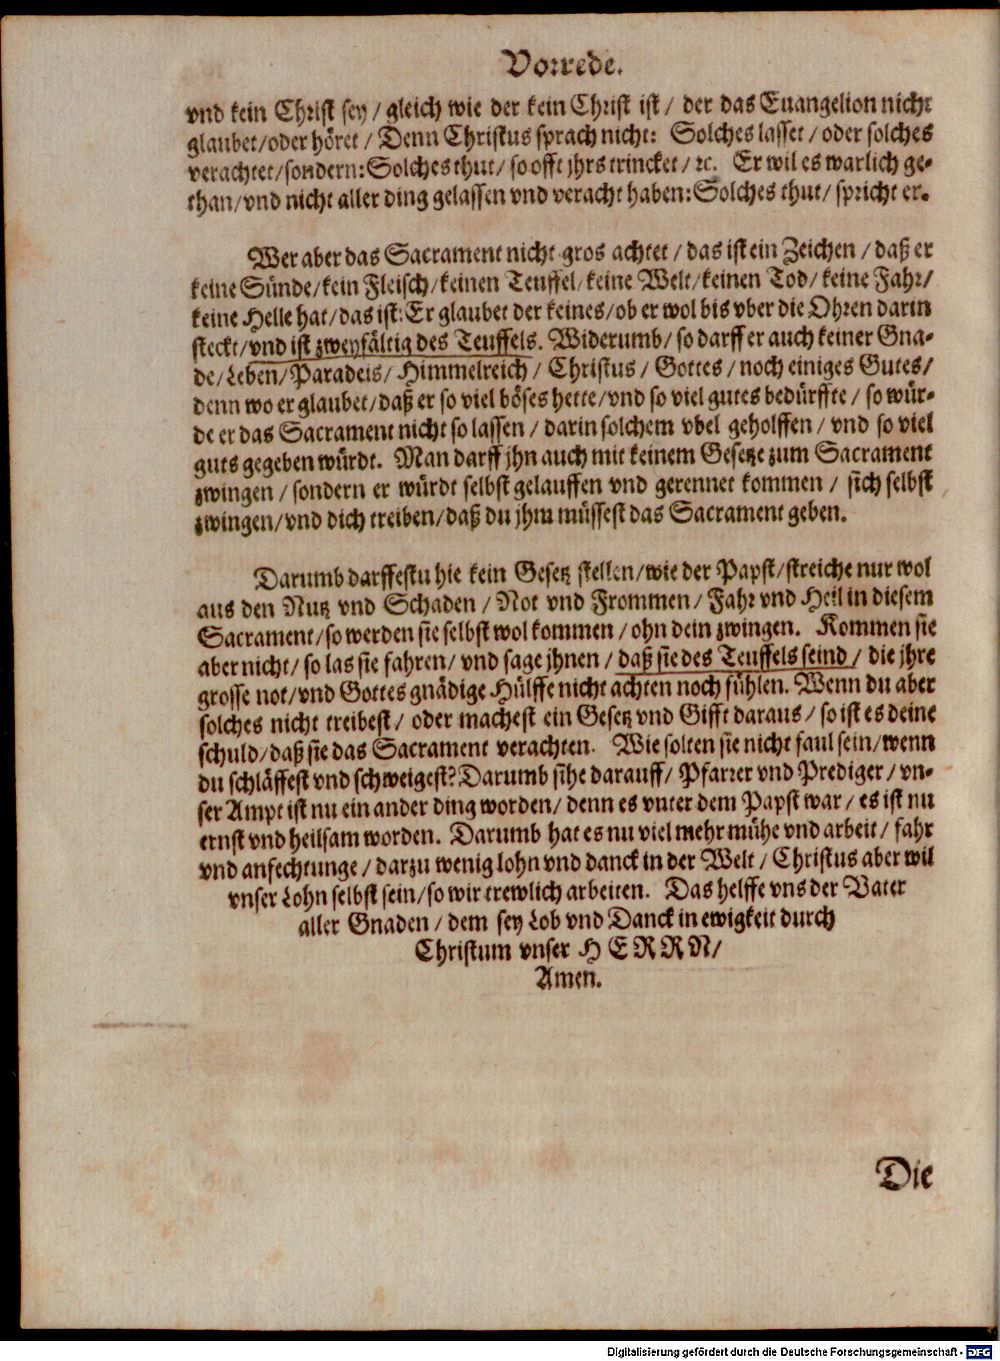 Vorrede.
vnd kein Christ sey / gleich wie der kein Christ ist / der das Euangelion nicht
glaubet/oder höret / Denn Christus sprach nicht: Solches lasset / oder solches
verachtet/sondern: Solches thut/ so offt jhrs trincket / ꝛc. Er wil es warlich ge-
than/vnd nicht aller ding gelassen vnd veracht haben: Solches thut/ spricht er.
Wer aber das Sacrament nicht gros achtet / das ist ein Zeichen / daß er
keine Sünde/kein Fleisch/keinen Teuffel/keine Welt/keinen Tod/keine Fahr/
keine Helle hat/das ist: Er glaubet der keines/ob er wol bis vber die Ohren darin
steckt/vnd ist zweyfältig des Teuffels. Widerumb/so darff er auch keiner Gna-
de/Leben/Paradeis/Himmelreich / Christus / Gottes / noch einiges Gutes/
denn wo er glaubet/daß er so viel böses hette/vnd so viel gutes bedürffte / so wür-
de er das Sacrament nicht so lassen / darin solchem vbel geholffen / vnd so viel
guts gegeben würdt. Man darff jhn auch mit keinem Gesetze zum Sacrament
zwingen / sondern er würdt selbst gelauffen vnd gerennet kommen / sich selbst
zwingen/vnd dich treiben/daß du jhm müssest das Sacrament geben.
Darumb darffestu hie kein Gesetz stellen/wie der Papst/streiche nur wol
aus den Nutz vnd Schaden / Not vnd Frommen / Fahr vnd Heil in diesem
Sacrament/so werden sie selbst wol kommen / ohn dein zwingen. Kommen sie
aber nicht/ so las sie fahren/ vnd sage jhnen / daß sie des Teuffels seind / die jhre
grosse not/vnd Gottes gnädige Hülffe nicht achten noch fühlen. Wenn du aber
solches nicht treibest / oder machest ein Gesetz vnd Gifft daraus / so ist es deine
schuld/daß sie das Sacrament verachten. Wie solten sie nicht faul sein/wenn
du schläffest vnd schweigest? Darumb sihe darauff/ Pfarrer vnd Prediger / vn-
ser Ampt ist nu ein ander ding worden/ denn es vnter dem Papst war / es ist nu
ernst vnd heilsam worden. Darumb hat es nu viel mehr mühe vnd arbeit / fahr
vnd anfechtunge / darzu wenig lohn vnd danck in der Welt / Christus aber wil
vnser Lohn selbst sein/so wir trewlich arbeiten. Das helffe vns der Vater
aller Gnaden / dem sey Lob vnd Danck in ewigkeit durch
Christum vnser HERRN/
Amen.
Die
Digitalisierung gefördert durch die Deutsche Forschungsgemeinschaft - DFG